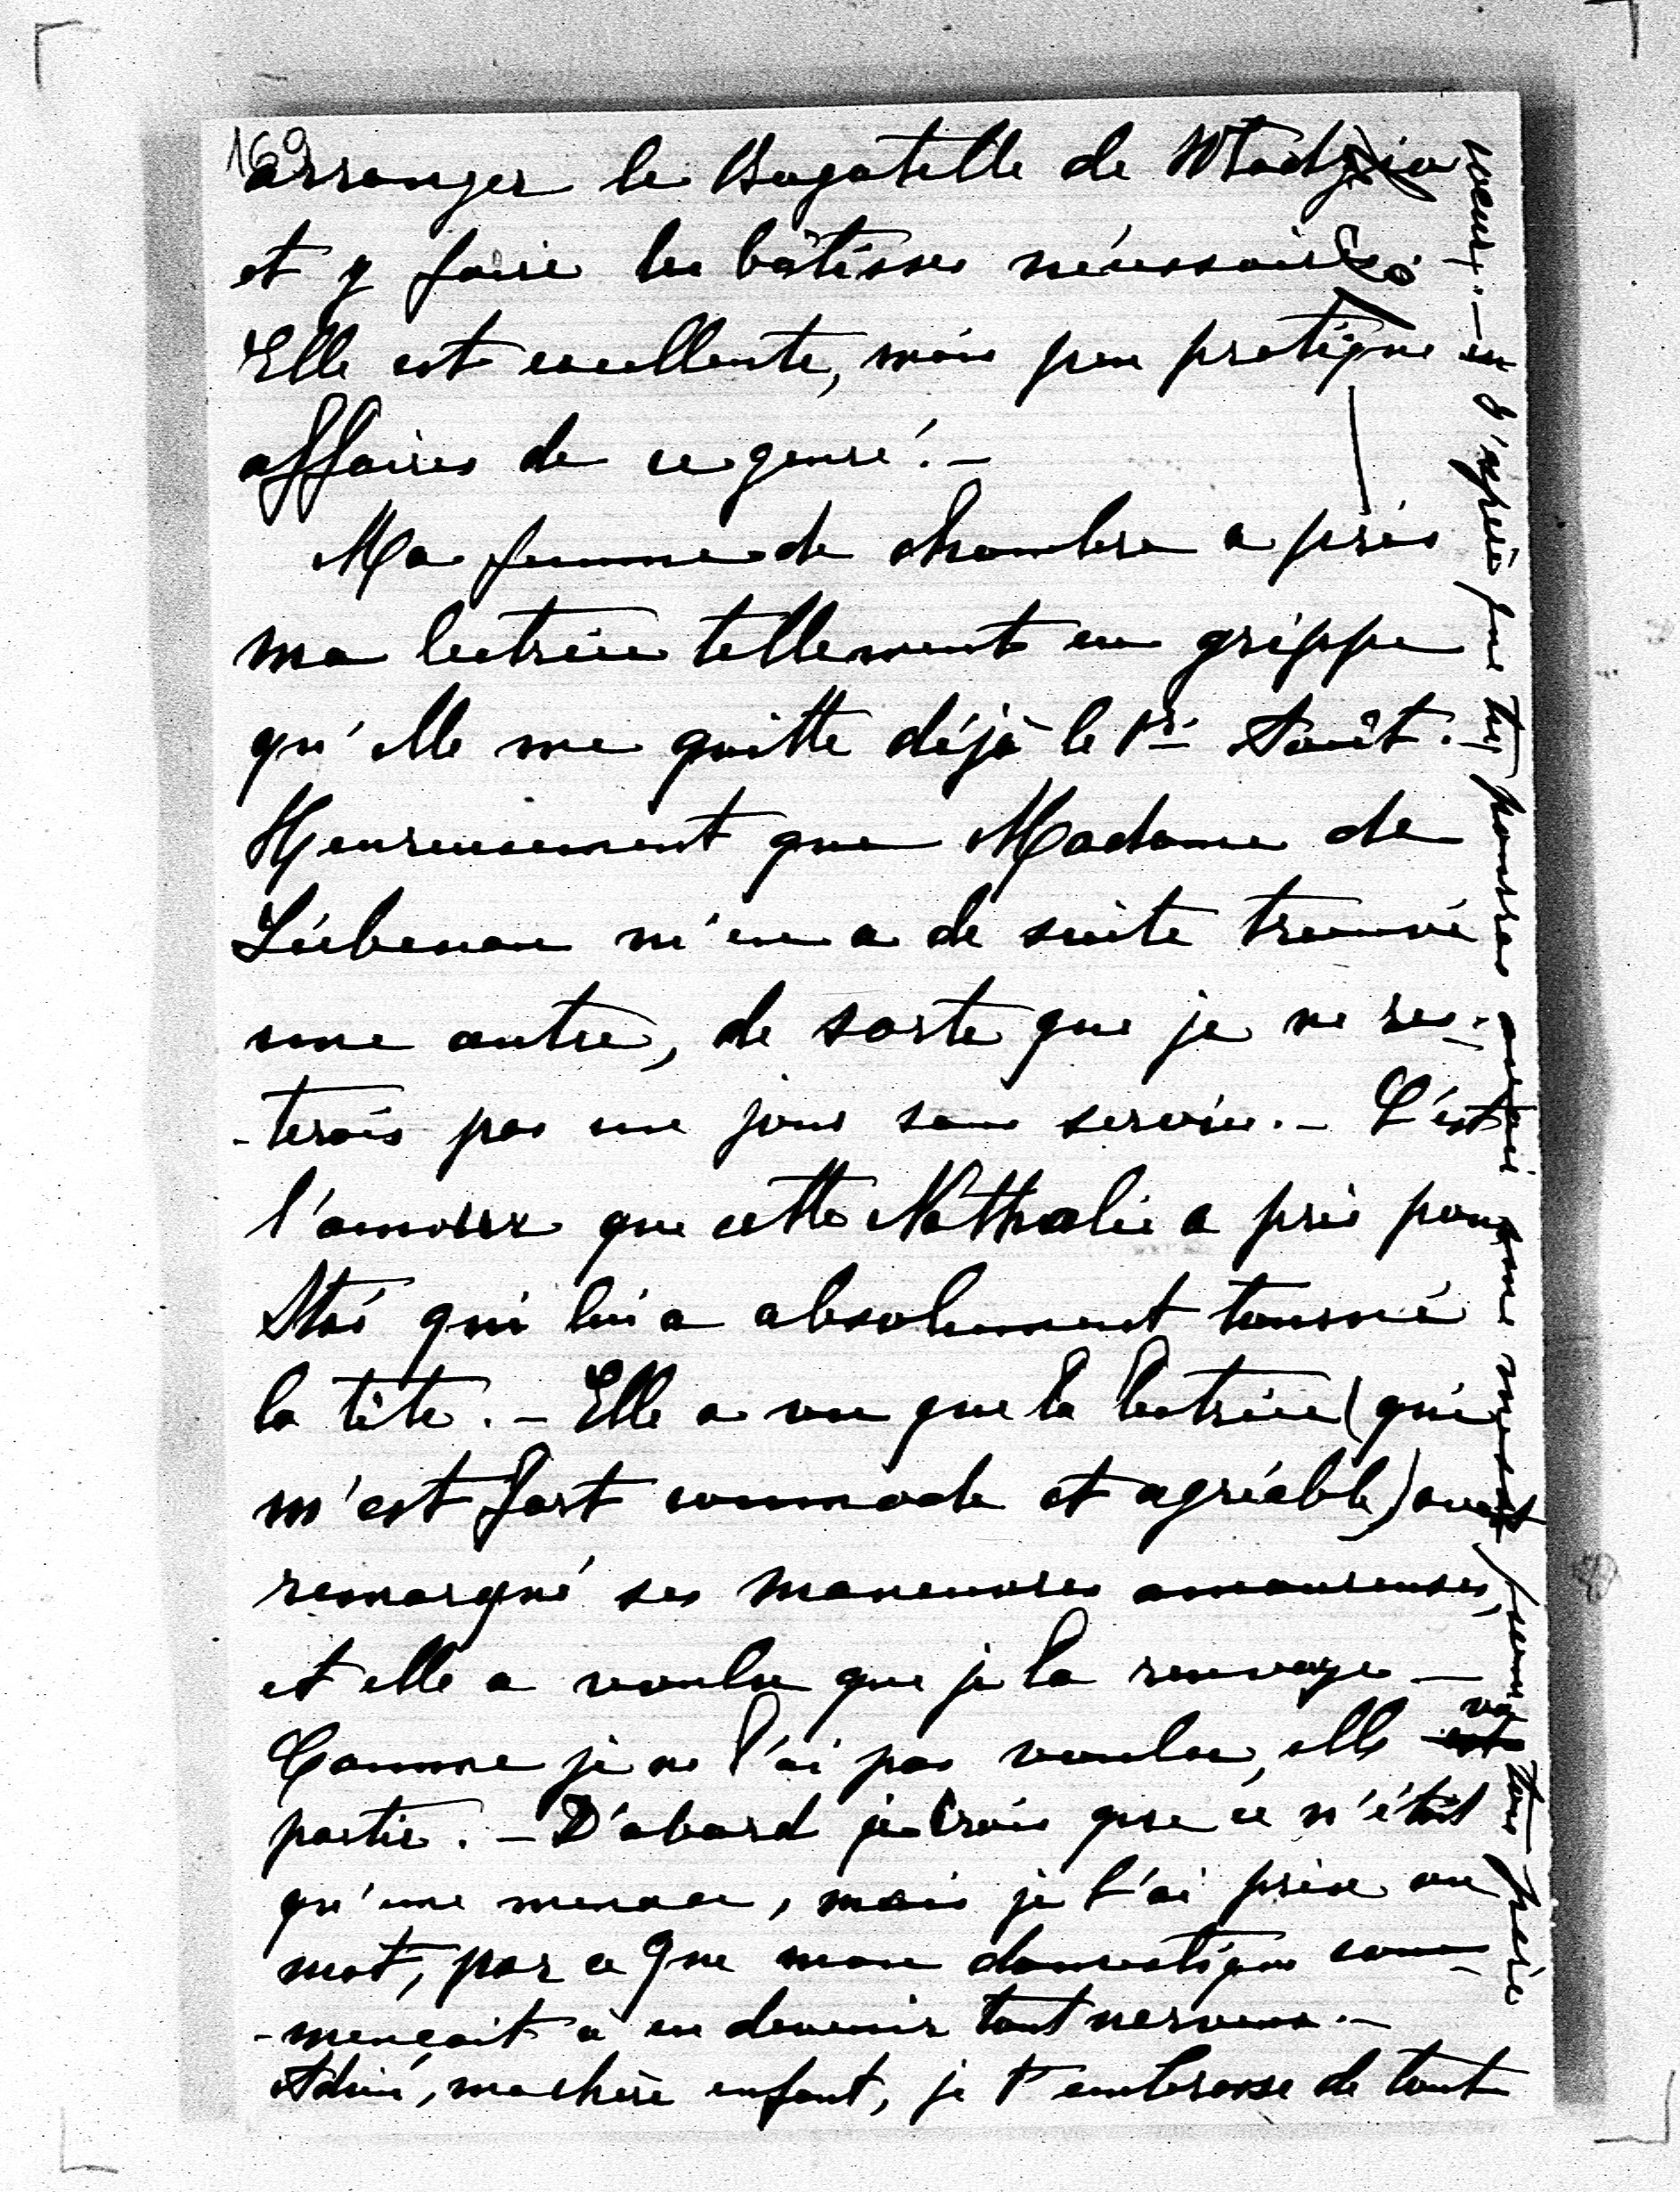 169
arranger le Bagatelle de Wladzio
et y faire les bâtisses nécessaires.
Elle est excellente, mais peu pratique en
affaires de ce genre. –
Ma femme de chambre a pris
ma lectrice tellement en grippe
qu'elle me quitte déjà le 1er Août. –
Heureusement que Madame de
Liebenau m'en a de suite trouvé
une autre, de sorte que je ne res-
-terais pas un jour sans service. – C'est
l'amour que cette Nathalie a pris pour
qui lui a absolument tourné
la tête. – Elle a vu que la lectrice (qui
m'est fort commode et agréable) avait
remarqué ses maneuvres amoureuses,
et elle a voulu que je la renvoye –
Comme je ne l'ai pas voulu, elle va
partir. – D'abord je crois que ce n'était
qu'une menace, mais je l'ai prise au
mot, par ce que mon domestique com-
-mençait à en devenir tout nerveux. –
Adieu, ma chère enfant, je t'embrasse de tout
coeur. – d'après que tu pourras pour ton père